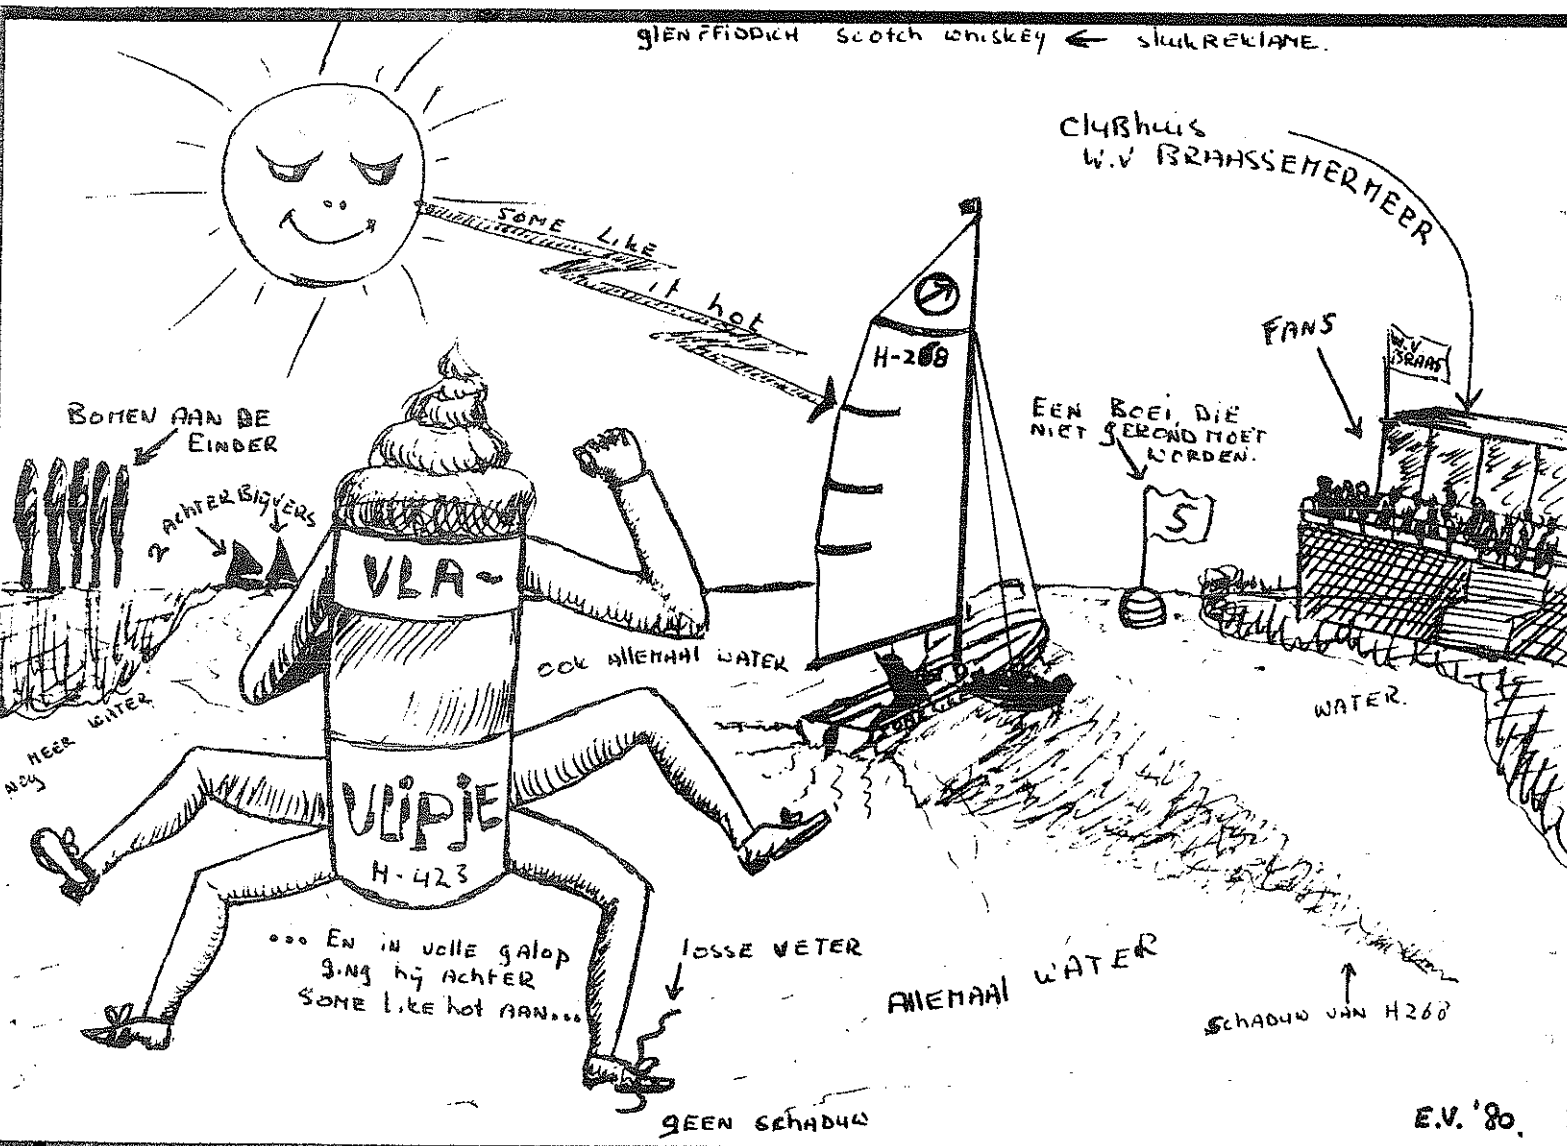 glENFFiDDiCH Scotch whiskEy ← sluikREKlAME.
ClUBhuis
W.V BRAASSEMERMEER
SOME LikE
it hot
H-268
FANS
W.V
BRAAS
BOMEN AAN DE
EiNDER
2 AchTERBlijVERS
EEN BOEi DiE
NiET gEROND MOET
WORDEN.
5
VLA-
ook AllEMAAl WATER
WATER.
NOg MEER WATER
VLiPjE
H-423
... EN iN vollE gAlop
giNg hij AchTER
SOME likE hot AAN...
lossE VETER
AllEMAAl WATER
SchADUW VAN H268
gEEN SchADUW
E.V. '80.